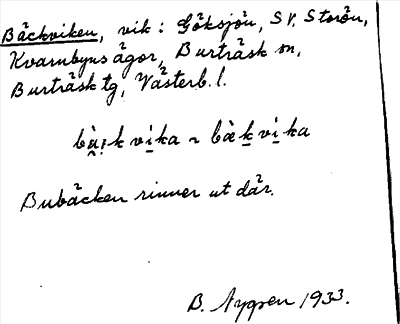 Bäckviken, vik i Göksjön, SV. Storön,
Kvarnbyns ägor, Burträsk sn,
Burträsk tg, Västerb. l.
bà̤ı̣k vi̱ka ~ bàḵ vi̱ka
Bubäcken rinner ut där.
B. Nygren 1933.